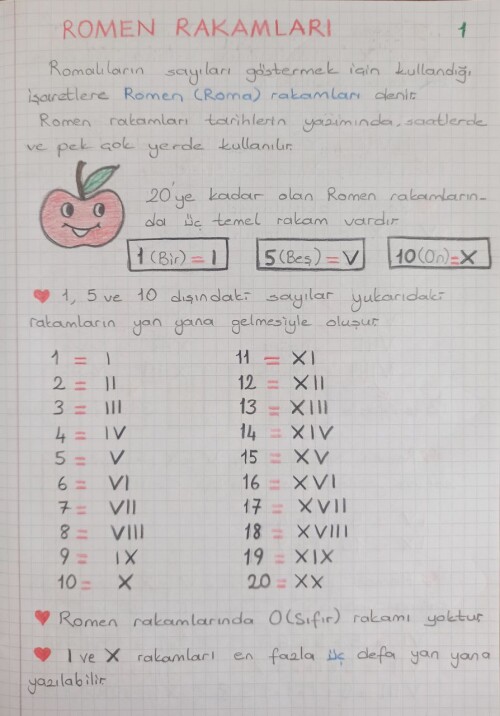 ROMEN RAKAMLARI 1
Romalıların sayıları göstermek için kullandığı
işaretlere Romen (Roma) rakamları denir.
Romen rakamları tarihlerin yazımında, saatlerde
ve pek çok yerde kullanılır.
20'ye kadar olan Romen rakamların-
da üç temel rakam vardır.
1 (Bir) = I 5 (Beş) = V 10 (On) = X
1, 5 ve 10 dışındaki sayılar yukarıdaki
rakamların yan yana gelmesiyle oluşur.
1 = I 11 = XI
2 = II 12 = XII
3 = III 13 = XIII
4 = IV 14 = XIV
5 = V 15 = XV
6 = VI 16 = XVI
7 = VII 17 = XVII
8 = VIII 18 = XVIII
9 = IX 19 = XIX
10 = X 20 = XX
Romen rakamlarında 0 (Sıfır) rakamı yoktur.
I ve X rakamları en fazla üç defa yan yana
yazılabilir.